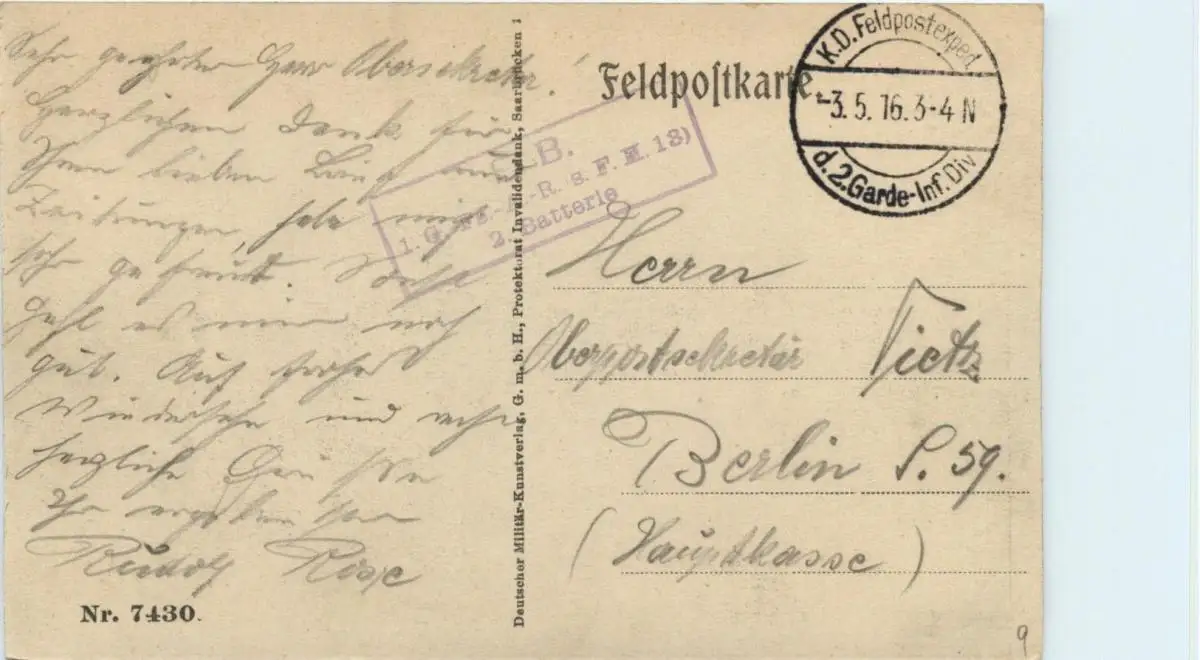 Sehr geehrter Herr Obersekretär!
Herzlichen Dank für
Ihren lieben Brief und
Zeitungen, habe mich
sehr gefreut. Sonst
geht es mir noch
gut. Auf frohes
Wiedersehn und recht
herzliche Grüße
Ihr ergebenster
Rudolf
Nr. 7430.
Deutscher Militär-Kunstverlag, G. m. b. H., Protektorat Invalidendank, Saarbrücken 1
Feldpostkarte
K.D. Feldpostexped.
-3.5.16. 3-4 N
d. 2. Garde-Inf. Div
B.
1. G. R. s. F. H. 13)
2. Batterie
Herrn
Oberpostsekretär Tietz
Berlin S. 59.
(Hauptkasse)
9